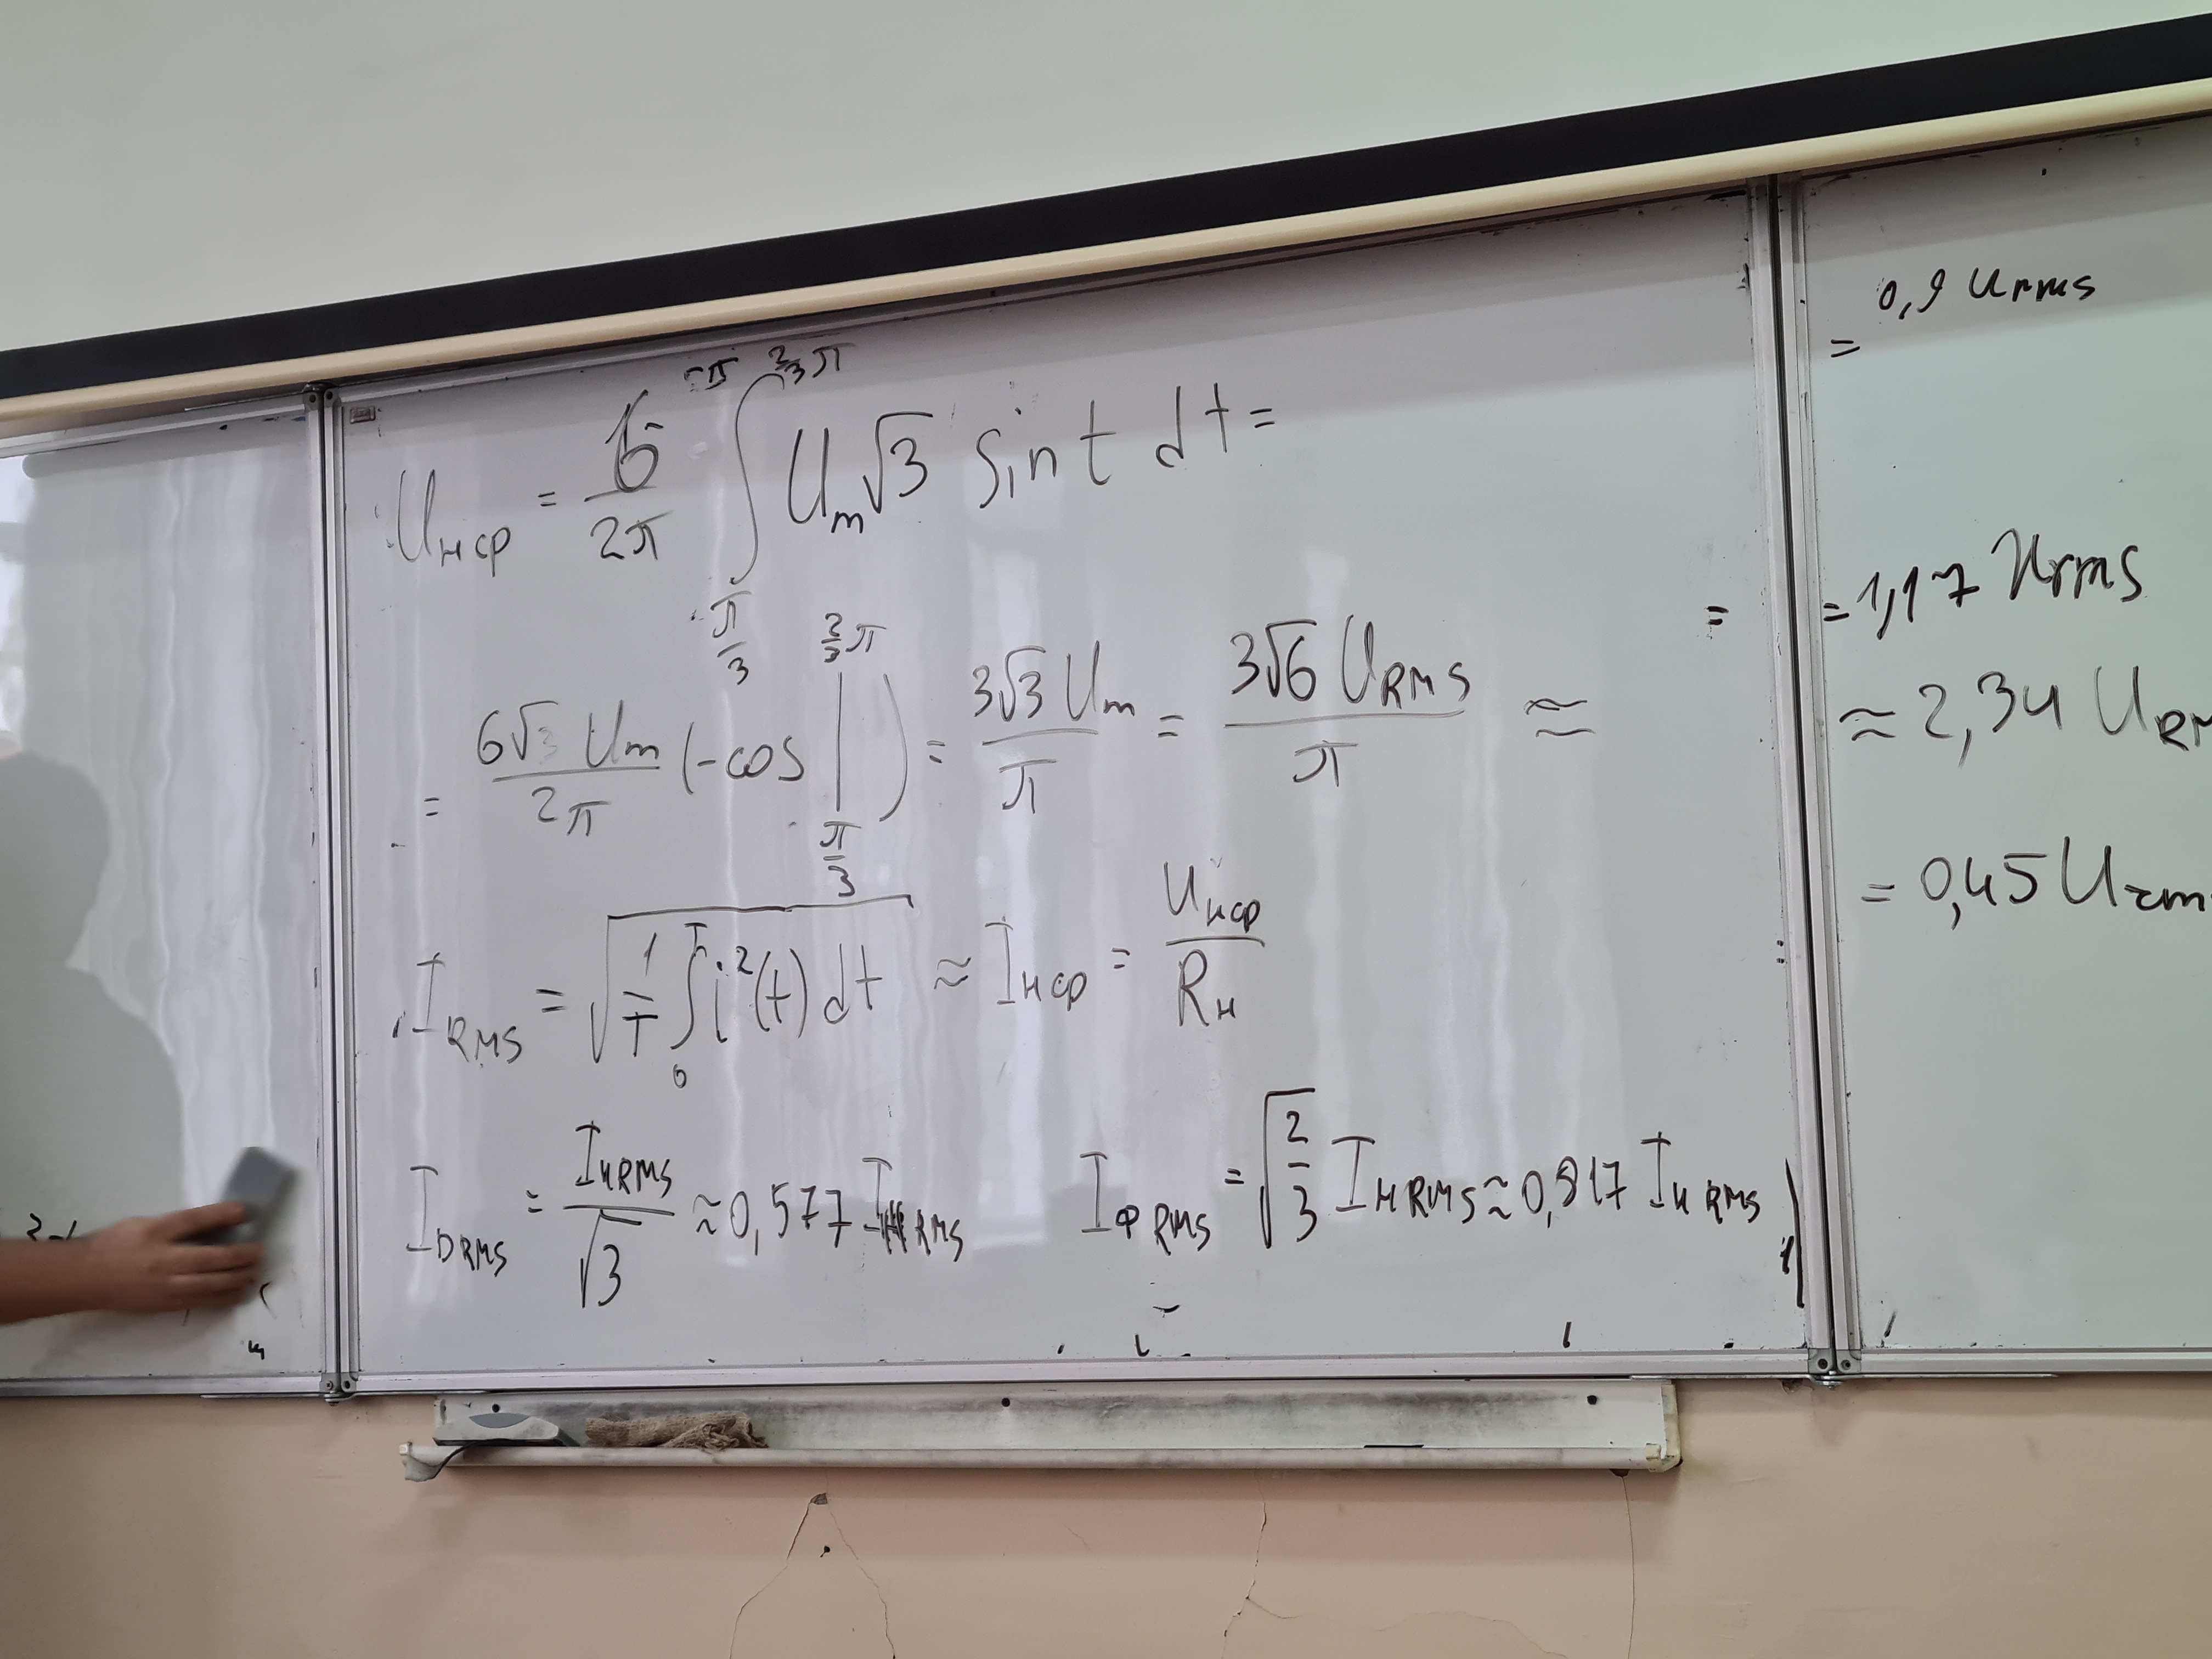 U_нср = 6/2π ∫_{π/3}^{2/3 π} U_m √3 sin t dt =
= 6√3 U_m / 2π (-cos |_{π/3}^{2/3 π}) = 3√3 U_m / π = 3√6 U_RMS / π ≈
I_RMS = √(1/T ∫_0^T i²(t) dt) ≈ I_нср = U_нср / R_н
I_DRMS = I_нRMS / √3 ≈ 0,577 I_нRMS
I_ФRMS = √(2/3) I_нRMS ≈ 0,817 I_нRMS
= 0,9 Urms
= = 1,17 Urms
≈ 2,34 U
= 0,45 U